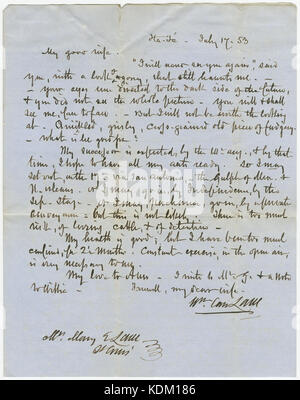 Sta. Fé - July 17. 53
My good wife.
"I will never see you again" said
you, with a look of agony, that still haunts me.
- your eyes were directed to the dark side of the picture,
& you did not see the whole picture. You will & shall
see me, face to face. - But I will not be worth the looking
at - a wrinkled, grisly, cross-grained old piece of
- what is he good for?
My successor is expected, by the 10th Aug. & by that
time, I hope to have all my acts ready. So I may
set out, with the 1st for San Antonio - the Gulph of Mex. &
N. Orleans. or I may go by Independence, by the
Sep. Stage. Or I may, go by a private
conveyance - but this is not likely. There is too much
risk, of losing cattle, & of detention.
My health is good; but I have been too much
confined, for 2 Months. Constant exercise, in the open air,
is very necessary to me.
My love to Ann. I write to Mr. G. & a Note
to Willie. Farewell, my dear wife.
Wm. Carr Lane
Mrs. Mary E. Lane
St. Louis
alamy
Image ID: KDM186
www.alamy.com